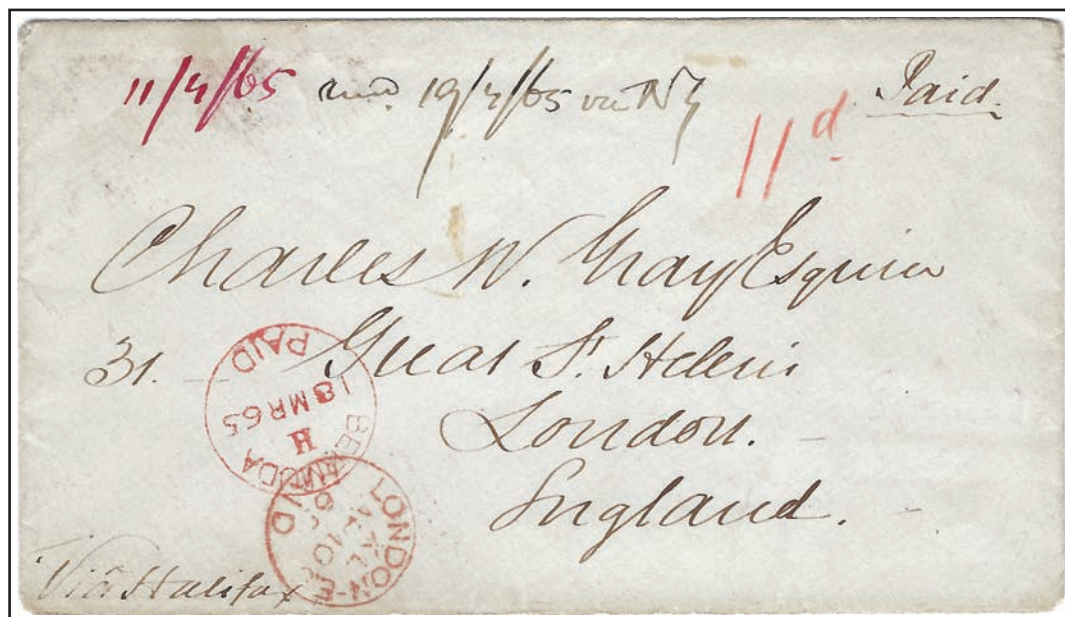 11/4/65 19/4/65 via NY
Paid.
11d
Charles W. Gray Esquire
31. Great St. Helens
London.
England.
PAID
18 MR 65
H
BERMUDA
LONDON-E
PAID
Via Halifax